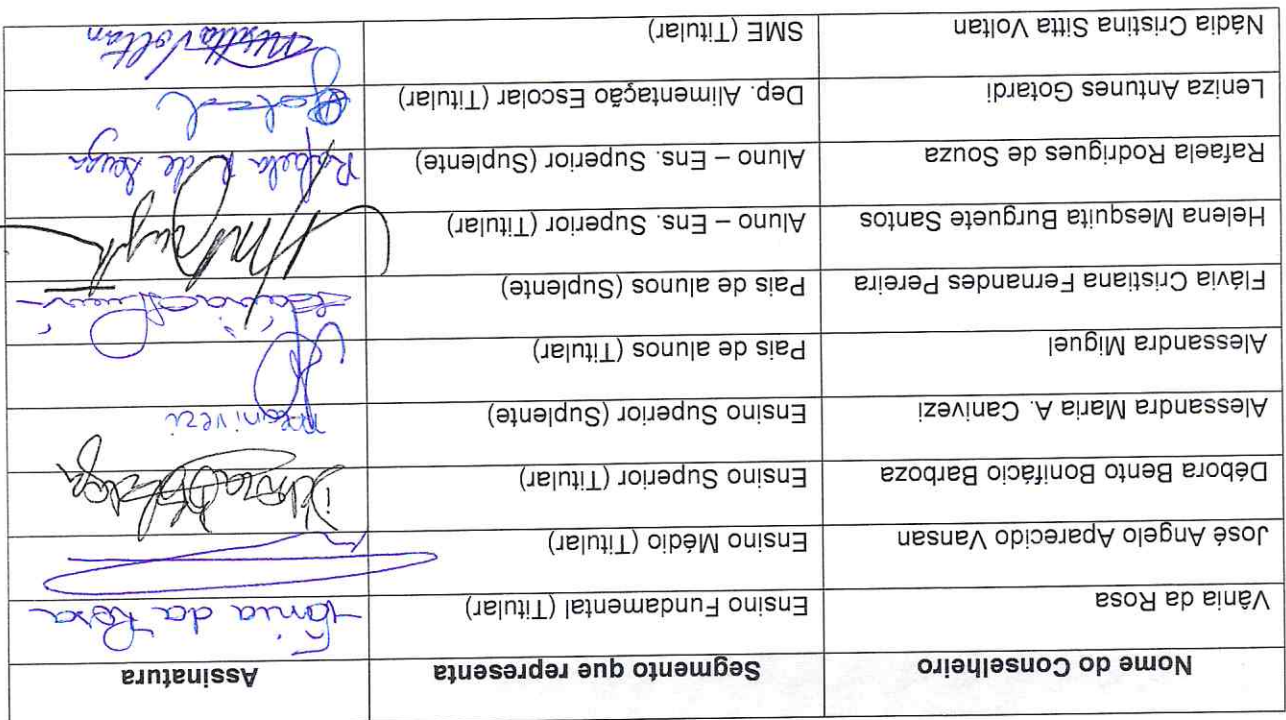 Nome do Conselheiro Segmento que representa Assinatura
Vânia da Rosa Ensino Fundamental (Titular) Vânia da Rosa
José Angelo Aparecido Vansan Ensino Médio (Titular)
Débora Bento Bonifácio Barboza Ensino Superior (Titular)
Alessandra Maria A. Canivezi Ensino Superior (Suplente) Canivezi
Alessandra Miguel Pais de alunos (Titular)
Flávia Cristiana Fernandes Pereira Pais de alunos (Suplente)
Helena Mesquita Burguete Santos Aluno – Ens. Superior (Titular)
Rafaela Rodrigues de Souza Aluno – Ens. Superior (Suplente) Rafaela R de Souza
Leniza Antunes Gotardi Dep. Alimentação Escolar (Titular)
Nádia Cristina Sitta Voltan SME (Titular) Voltan